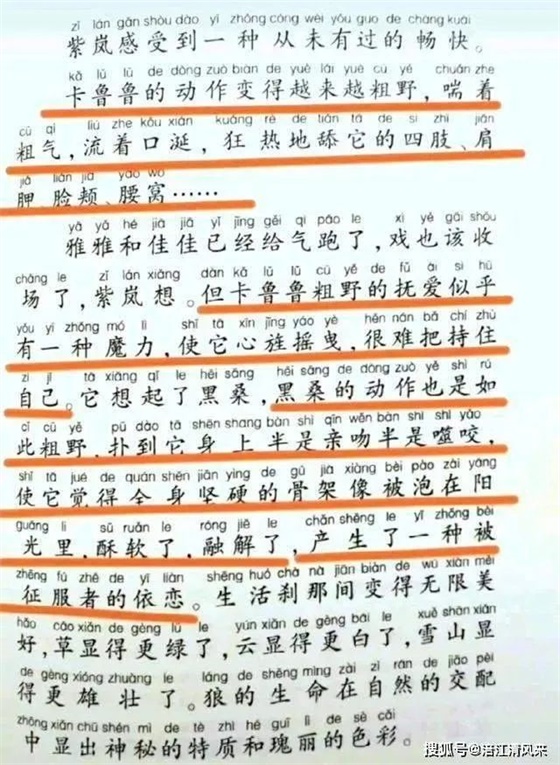 zǐ lán gǎn shòu dào yī zhǒng cóng wèi yǒu guo de chàng kuài
紫岚感受到一种从未有过的畅快。
kǎ lǔ lǔ de dòng zuò biàn de yuè lái yuè cū yě chuǎn zhe
卡鲁鲁的动作变得越来越粗野，喘着
cū qì liú zhe kǒu xián kuáng rè de tiǎn tā de sì zhī jiān
粗气，流着口涎，狂热地舔它的四肢、肩
jiǎ liǎn jiá yāo wō
胛、脸颊、腰窝……
yǎ yǎ hé jiā jiā yǐ jīng gěi qì pǎo le xì yě gāi shōu
雅雅和佳佳已经给气跑了，戏也该收
chǎng le zǐ lán xiǎng dàn kǎ lǔ lǔ cū yě de fǔ ài sì hū
场了，紫岚想。但卡鲁鲁粗野的抚爱似乎
yǒu yī zhǒng mó lì shǐ tā xīn jīng yáo yè hěn nán bǎ chí zhù
有一种魔力，使它心旌摇曳，很难把持住
zì jǐ tā xiǎng qǐ le hēi sāng hēi sāng de dòng zuò yě shì rú
自己。它想起了黑桑，黑桑的动作也是如
cǐ cū yě pū dào tā shēn shang bàn shì qīn wěn bàn shì shì yǎo
此粗野，扑到它身上半是亲吻半是噬咬，
shǐ tā jué de quán shēn jiān yìng de gǔ jià xiàng bèi pào zài yáng
使它觉得全身坚硬的骨架像被泡在阳
guāng li sū ruǎn le róng jiě le chǎn shēng le yī zhǒng bèi
光里，酥软了，融解了，产生了一种被
zhēng fú zhě de yī liàn shēng huó chà nà jiān biàn de wú xiàn měi
征服者的依恋。生活刹那间变得无限美
hǎo cǎo xiǎn de gèng lǜ le yún xiǎn de gèng bái le xuě shān xiǎn
好，草显得更绿了，云显得更白了，雪山显
de gèng xióng zhuàng le láng de shēng mìng zài zì rán de jiāo pèi
得更雄壮了。狼的生命在自然的交配
zhōng xiǎn chū shén mì de tè zhì hé guī lì de sè cǎi
中显出神秘的特质和瑰丽的色彩。
搜狐号@涪江清风来